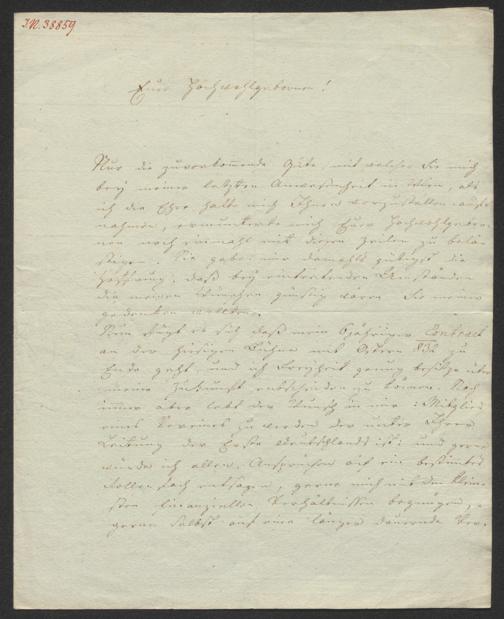 I.N. 38859
Euer Hochwohlgeboren!
Nur die zuvorkommende Güte, mit welcher Sie mich
bey meiner letzten Anwesenheit in Wien, als
ich die Ehre hatte mich Ihnen vorzustellen auf-
nahmen, ermunterte mich Euer Hochwohlgebor-
nen noch einmahl mit diesen Zeilen zu belä-
stigen. Sie gaben mir damahls gütigst die
Hoffnung, daß bey eintretenden Umständen
die meinen Wünschen günstig wären Sie meiner
gedenken wollten.
Nun fügt es sich daß mein jähriger Contract
an der hiesigen Bühne mit Ostern 832 zu
Ende geht, und ich Freyheit genug besitze über
meine Zukunft entscheiden zu können. Noch
immer aber lebt der Wunsch in mir: Mitglied
eines Vereines zu werden der unter Ihrer
Leitung der Erste Deutschlands ist; und gern
würde ich allen Ansprüchen auf ein bestimmtes
Rollenfach entsagen, gerne mich mit den klein-
sten finanziellen Verhältnissen begnügen,
gerne selbst auf eine länger dauernde Ver-